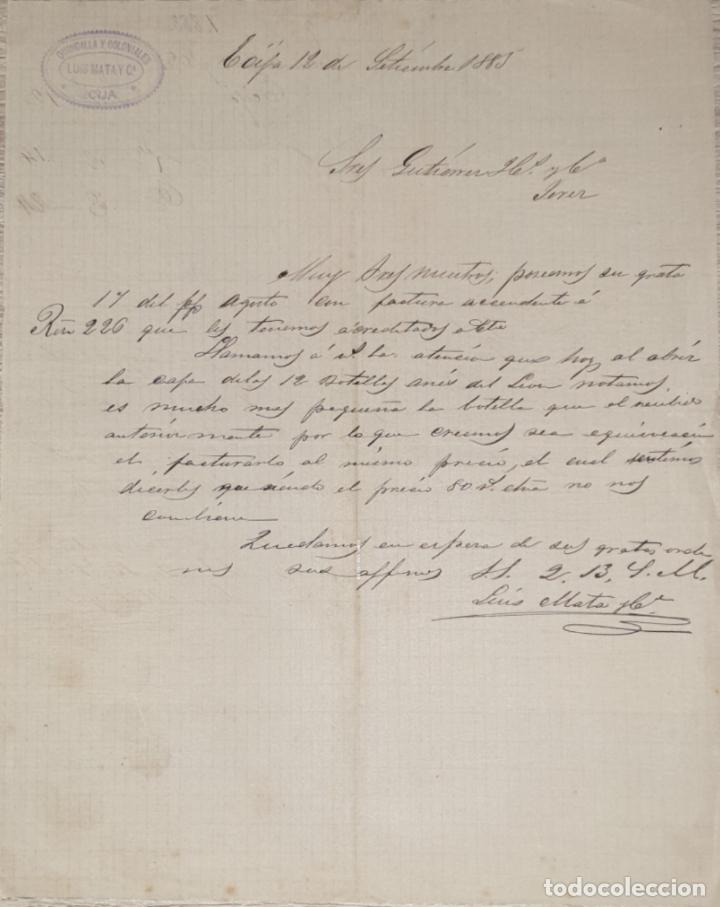 QUINCALLA Y COLONIALES
LUIS MATA Y Cª
ECIJA
Ecija 12 de Setiembre 1885
Sres Gutiérrez Hs. y Ca
Jerez
Muy Sres nuestros; poseemos su grata
17 del pp agosto con factura ascendente á
Rvn 226 que les tenemos acreditados
Llamamos á V. la atención que hoy al abrir
la caja de las 12 Botellas anís del Leon notamos
es mucho mas pequeña la botella que el recibido
anteriormente por lo que creemos sea equivocación
el facturarlo al mismo precio, el cual sentimos
decirles que siendo el precio 80 r. no nos
conbiene
Quedamos en espera de sus gratas orde
nes sus affmos S.S. Q. B. S. M.
Luis Mata y Ca
todocoleccion